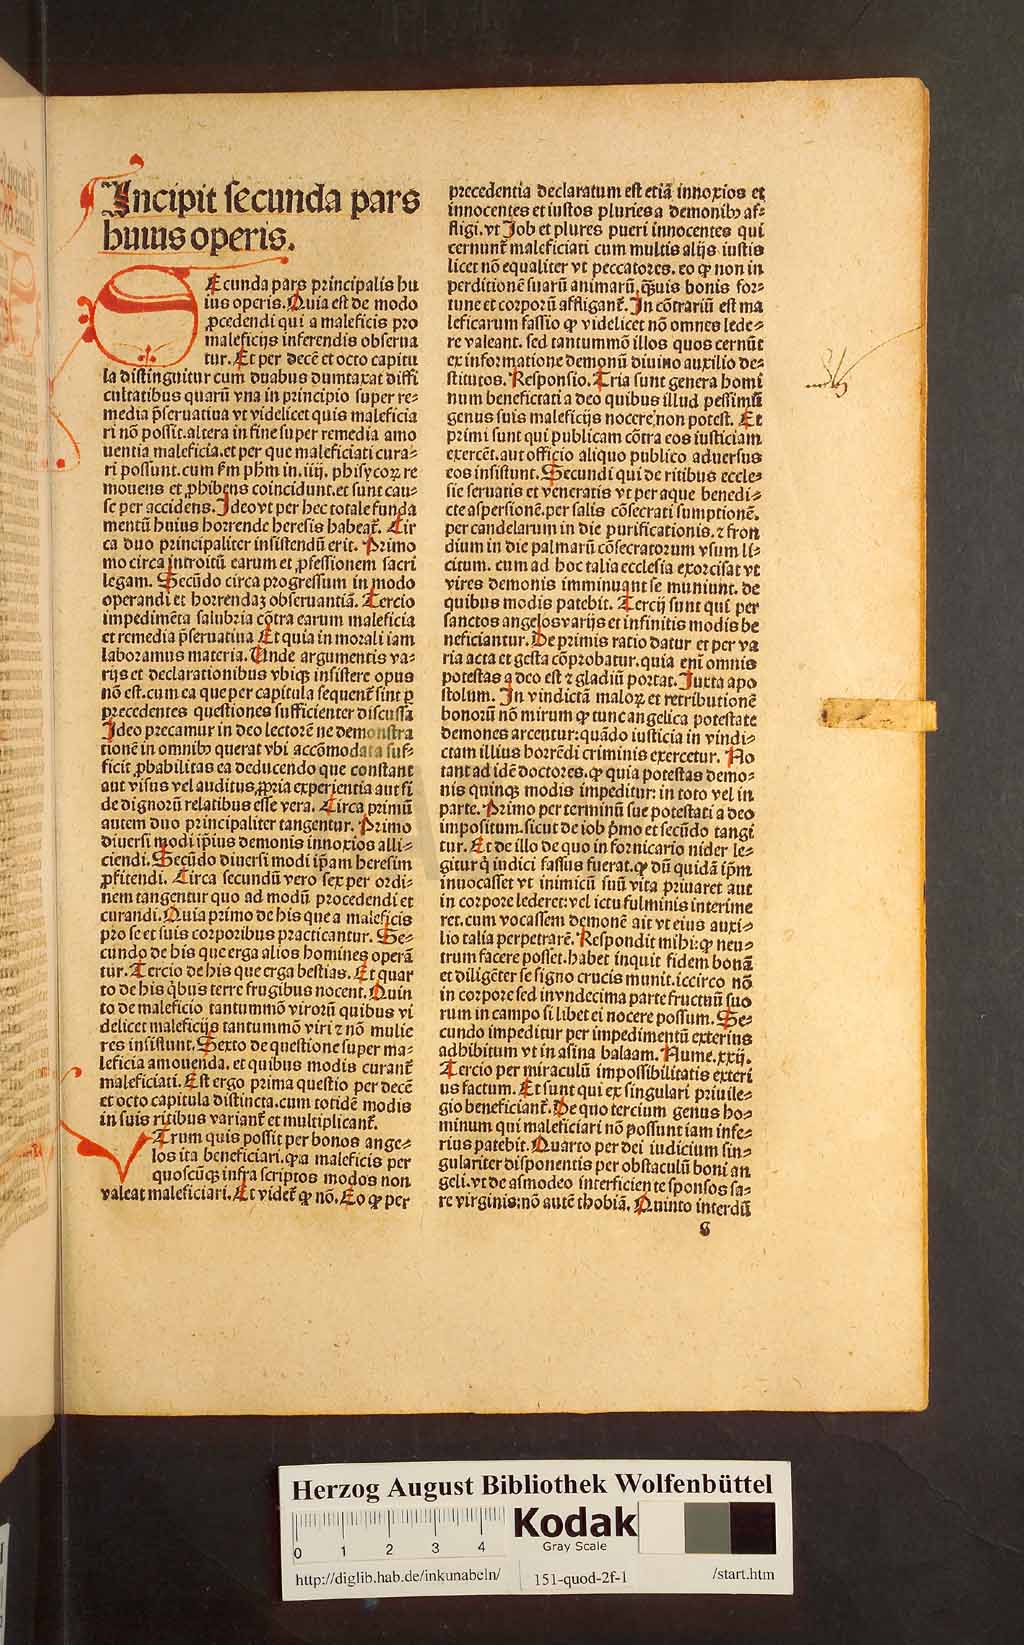 Incipit secunda pars
huius operis.
SEcunda pars principalis hu
ius operis. Quia est de modo
ꝓcedendi qui a maleficis pro
maleficijs inferendis obserua
tur. Et per decē et octo capitu
la distinguitur cum duabus dumtaxat diffi
cultatibus quarū vna in principio super re⸗
media p̄seruatiua vt videlicet quis maleficia
ri nō possit. altera in fine super remedia amo
uentia maleficia. et per que maleficiati cura⸗
ri possunt. cum ẜm ph̄m in .iiij. phisycoꝝ re
mouens et ꝓhibens coincidunt. et sunt cau⸗
se per accidens. Ideo vt per hec totale funda
mentū huius horrende heresis habeat̄. Cir
ca duo principaliter insistendū erit. Primo
mo circa introitū earum et ꝓfessionem sacri
legam. Secūdo circa progressum in modo
operandi et horrendaꝫ obseruantiā. Tercio
impedimēta salubria cōtra earum maleficia
et remedia p̄seruatiua Et quia in morali iam
laboramus materia. Unde argumentis va⸗
rijs et declarationibus vbiqꝫ insistere opus
nō est. cum ea que per capitula sequent̄ sint ꝑ
precedentes questiones sufficienter discussa
Ideo precamur in deo lectorē ne demonstra
tionē in omnibꝰ querat vbi accōmodata suf⸗
ficit ꝓbabilitas ea deducendo que constant
aut visus vel auditus, ꝓpria experientia aut fi
de dignorū relatibus esse vera. Circa primū
autem duo principaliter tangentur. Primo
diuersi modi ip̄ius demonis innoxios alli⸗
ciendi. Secūdo diuersi modi ip̄am heresim
ꝓfitendi. Circa secundū vero sex per ordi⸗
nem tangentur quo ad modū procedendi et
curandi. Quia primo de his que a maleficis
pro se et suis corporibus practicantur. Se⸗
cundo de his que erga alios homines operā
tur. Tercio de his que erga bestias. Et quar
to de his q̇bus terre frugibus nocent. Quin
to de maleficio tantummō virorū quibus vi
delicet maleficijs tantummō viri ⁊ nō mulie
res insistunt. Sexto de questione super ma⸗
leficia amouenda. et quibus modis curant̄
maleficiati. Est ergo prima questio per decē
et octo capitula distincta. cum totidē modis
in suis ritibus variant̄ et multiplicant̄.
VTrum quis possit per bonos ange⸗
los ita beneficiari. ꝙ a maleficis per
quoscūqꝫ infra scriptos modos non
valeat maleficiari. Et videt̄ ꝙ nō. Eo ꝙ per
precedentia declaratum est etiā innoxios et
innocentes et iustos pluries a demonibꝰ af⸗
fligi. vt Job et plures pueri innocentes qui
cernunt̄ maleficiati cum multis alijs iustis
licet nō equaliter vt peccatores. eo ꝙ non in
perditionē suarū animarū, qͣuis bonis for⸗
tune et corporū affligant̄. In cōtrariū est ma
leficarum fassio ꝙ videlicet nō omnes lede⸗
re valeant. sed tantummō illos quos cernūt
ex informatione demonū diuino auxilio de⸗
stitutos. Responsio. Tria sunt genera homi
num benefictati a deo quibus illud pessimū
genus suis maleficijs nocere non potest. Et
primi sunt qui publicam cōtra eos iusticiam
exercēt. aut officio aliquo publico aduersus
eos insistunt. Secundi qui de ritibus eccle⸗
sie seruatis et veneratis vt per aque benedi⸗
cte aspersionē. per salis cōsecrati sumptionē.
per candelarum in die purificationis. ⁊ fron
dium in die palmarū cōsecratorum vsum li⸗
citum. cum ad hoc talia ecclesia exorcisat vt
vires demonis imminuant se muniunt. de
quibus modis patebit. Tercij sunt qui per
sanctos angelos varijs et infinitis modis be
neficiantur. De primis ratio datur et per va
ria acta et gesta cōprobatur. quia eni omnis
potestas a deo est ⁊ gladiū portat. Juxta apo
stolum. In vindictā maloꝝ et retributionē
bonorū nō mirum ꝙ tunc angelica potestate
demones arcentur: quādo iusticia in vindi⸗
ctam illius horrēdi criminis exercetur. No
tant ad idē doctores. ꝙ quia potestas demo⸗
nis quinqꝫ modis impeditur: in toto vel in
parte. Primo per terminū sue potestati a deo
impositum. sicut de iob p̄mo et secūdo tangi
tur. Et de illo de quo in fornicario nider le⸗
gitur q̇ iudici fassus fuerat. ꝙ dū quidā ip̄m
inuocasset vt inimicū suū vita priuaret aut
in corpore lederet: vel ictu fulminis interime
ret. cum vocassem demonē ait vt eius auxi⸗
lio talia perpetrarē. Respondit mihi: ꝙ neu⸗
trum facere posset. habet inquit fidem bonā
et diligēter se signo crucis munit. iccirco nō
in corpore sed in vndecima parte fructuū suo
rum in campo si libet ei nocere possum. Se⸗
cundo impeditur per impedimentū exterius
adhibitum vt in asina balaam. Nume. xxij.
Tercio per miraculū impossibilitatis exteri
us factum. Et sunt qui ex singulari priuile⸗
gio beneficiant̄. De quo tercium genus ho⸗
minum qui maleficiari nō possunt iam infe⸗
rius patebit. Quarto per dei iudicium sin⸗
gulariter disponentis per obstaculū boni an
geli. vt de asmodeo interficiente sponsos sa⸗
re virginis: nō autē thobiā. Quinto interdū
Herzog August Bibliothek Wolfenbüttel
0 1 2 3 4
Kodak
Gray Scale
http://diglib.hab.de/inkunabeln/ 151-quod-2f-1 /start.htm